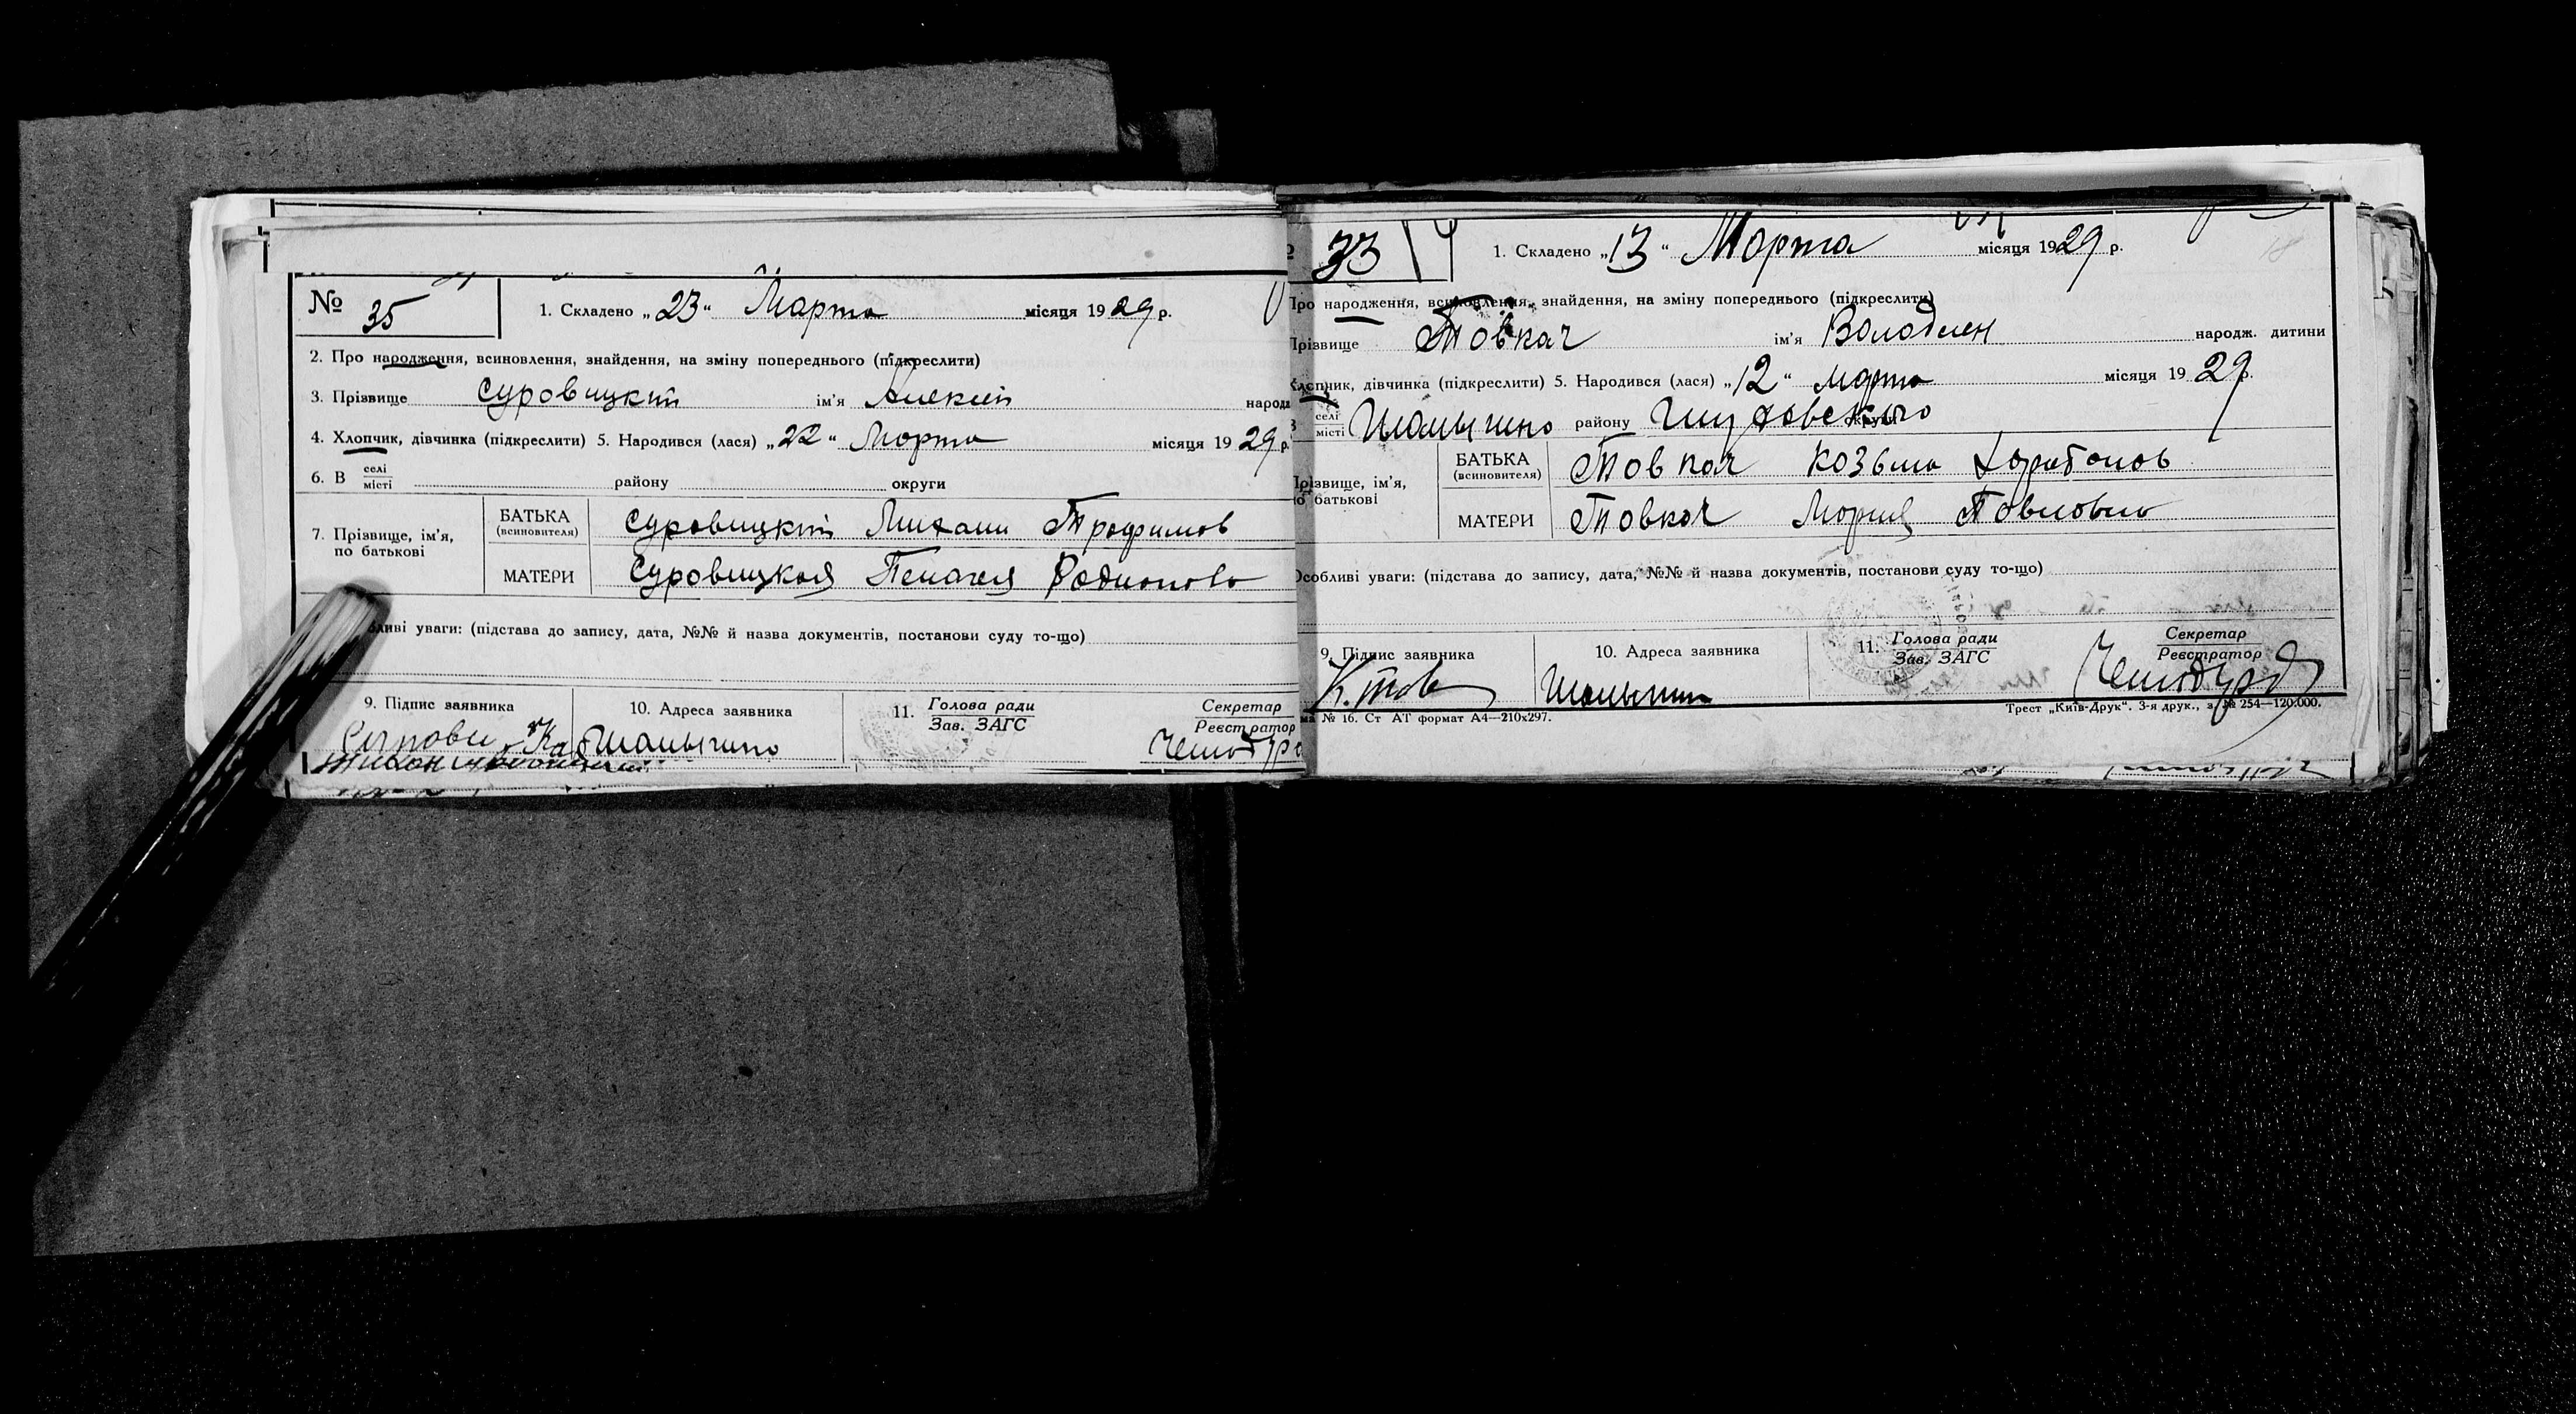 № 35
1. Складено „23“ Марта місяця 1929 р.
2. Про народження, всиновлення, знайдення, на зміну попереднього (підкреслити)
3. Прізвище Суровицкий ім'я Алексей народж
4. Хлопчик, дівчинка (підкреслити) 5. Народився (лася) „22“ Марта місяця 1929 р.
6. В селі місті району округи
7. Прізвище, ім'я, по батькові
БАТЬКА (всиновителя) Суровицкий Михаил Трофимов
МАТЕРИ Суровицкая Пелагея Родионова
уваги: (підстава до запису, дата, №№ й назва документів, постанови суду то-що)
9. Підпис заявника
10. Адреса заявника Шалыгино
11. Голова ради Зав. ЗАГС
Секретар Реєстратор
33
1. Складено „13“ Марта місяця 1929 р.
Про народження, всиновлення, знайдення, на зміну попереднього (підкреслити)
Прізвище Товкач ім'я Володмен народж. дитини
Хлопчик, дівчинка (підкреслити) 5. Народився (лася) „12“ Марта місяця 1929 р.
В селі місті Шалыгино району округи
Прізвище, ім'я, по батькові
БАТЬКА (всиновителя) Товкач Козьма
МАТЕРИ Товкач Мария Павловна
Особливі уваги: (підстава до запису, дата, №№ й назва документів, постанови суду то-що)
9. Підпис заявника К. Товк
10. Адреса заявника Шалыгин
11. Голова ради Зав. ЗАГС
Секретар Реєстратор
№ 16. Ст АТ формат А4—210x297.
Трест „Київ-Друк“. 3-я друк., з. № 254—120.000.